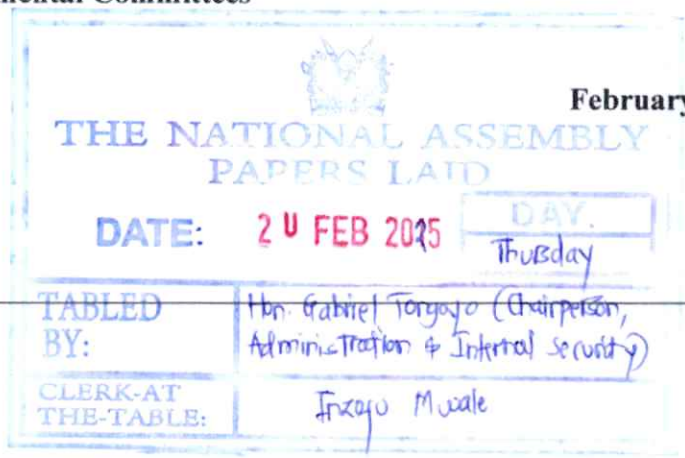 mental Committees
February
THE NATIONAL ASSEMBLY
PAPERS LAID
DATE: 20 FEB 2025 DAY.
Thursday
TABLED BY: Hon. Gabriel Tongoyo (Chairperson,
Administration & Internal Security)
CLERK-AT THE-TABLE: Inzofu Mwale